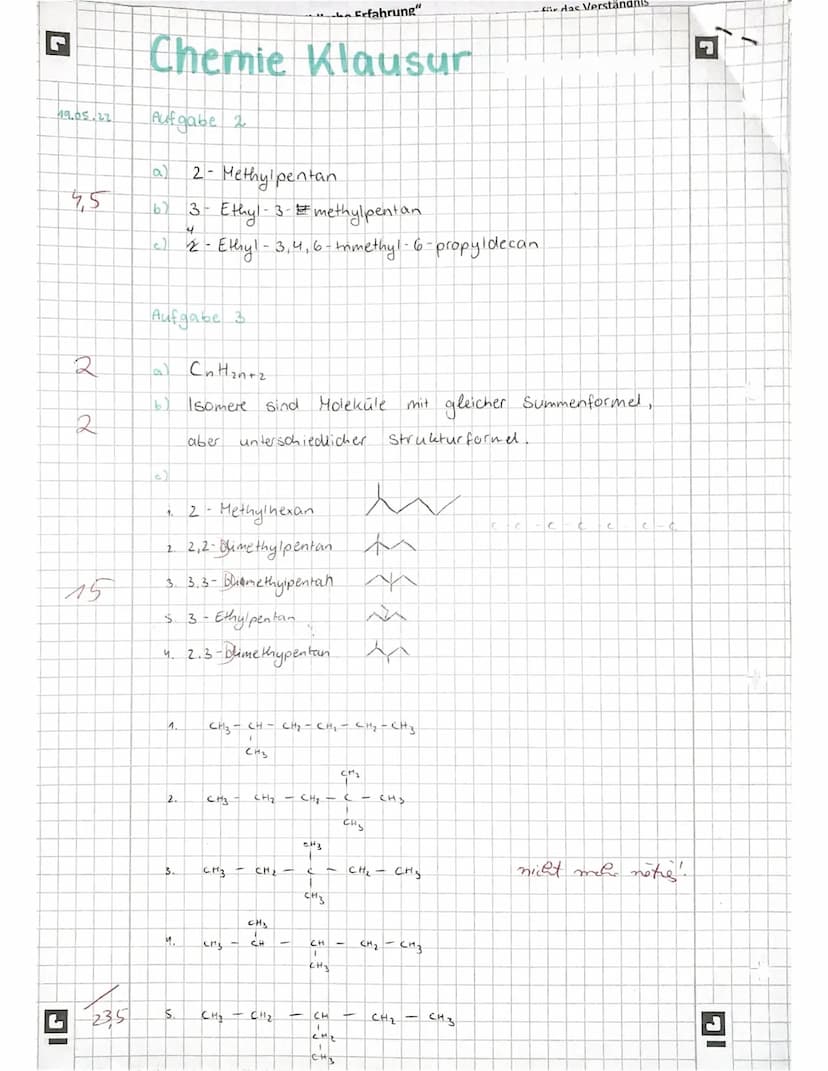 Erfahrung"
für das Verständnis
Chemie Klausur
19.05.22
Aufgabe 2
a) 2 - Methylpentan
4,5
b) 3 - Ethyl - 3 - methylpentan
4
c) 2 - Ethyl - 3,4,6 - trimethyl - 6 - propyldecan
Aufgabe 3
2
a) CnH2n+2
b) Isomere sind Moleküle mit gleicher Summenformel,
2
aber unterschiedlicher Strukturformel.
c)
1. 2 - Methylhexan
C - C - C - C C C - C
2. 2,2 - Dimethylpentan
3. 3.3 - Dimethylpentan
15
5. 3 - Ethylpentan
4. 2.3 - Dimethypentan
1. CH3 - CH - CH2 - CH2 - CH2 - CH3
CH3
CH3
2. CH3 - CH2 - CH2 - C - CH3
CH3
CH3
3. CH3 - CH2 - C - CH2 - CH3
nicht mehr nötig!
CH3
CH3
4. CH3 - CH - CH - CH2 - CH3
CH3
23,5
5. CH3 - CH2 - CH - CH2 - CH3
CH2
CH3